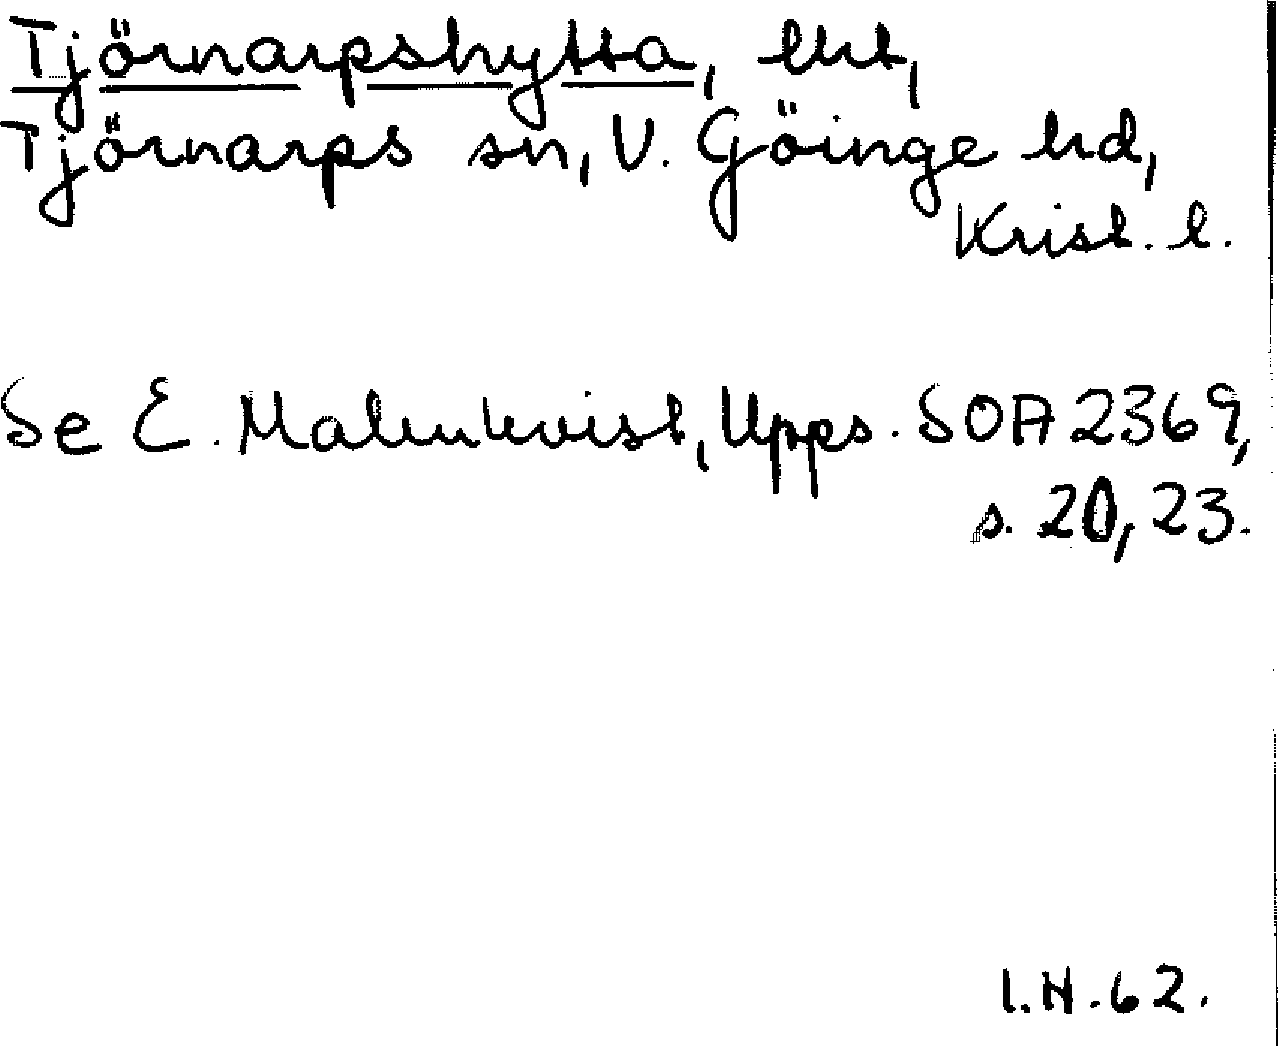 Tjörnarpshytta, ekt,
Tjörnarps sn, V. Göinge hd,
Krist. l.
Se E. Malmkvist, Upps. SOA 2369,
s. 20, 23.
I.H.62.